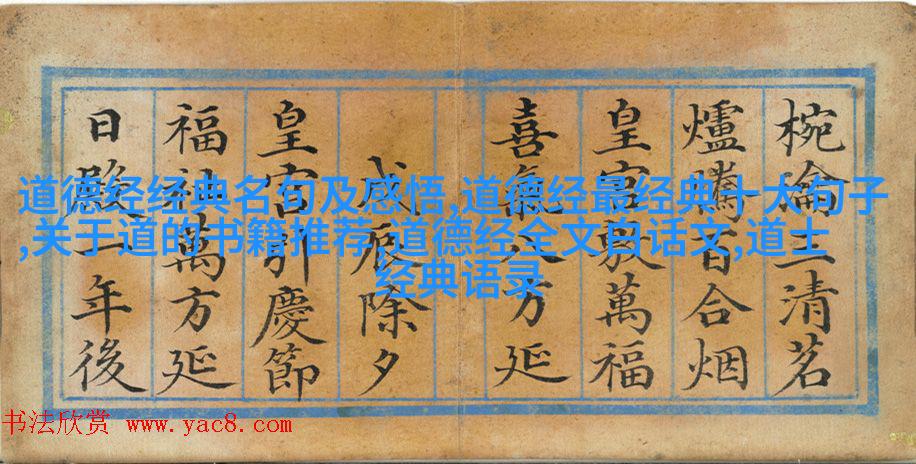 椀瀹三清茗
爐騰百合烟
皇宮敷萬福
喜氣八方延
戊辰除夕
皇宮引慶節
福祉萬方延
日一年後
道德经经典名句及感悟,道德经最经典十大句子
,关于道的书籍推荐,道德经全文白话文,道士
经典语录
书法欣赏 www.yac8.com